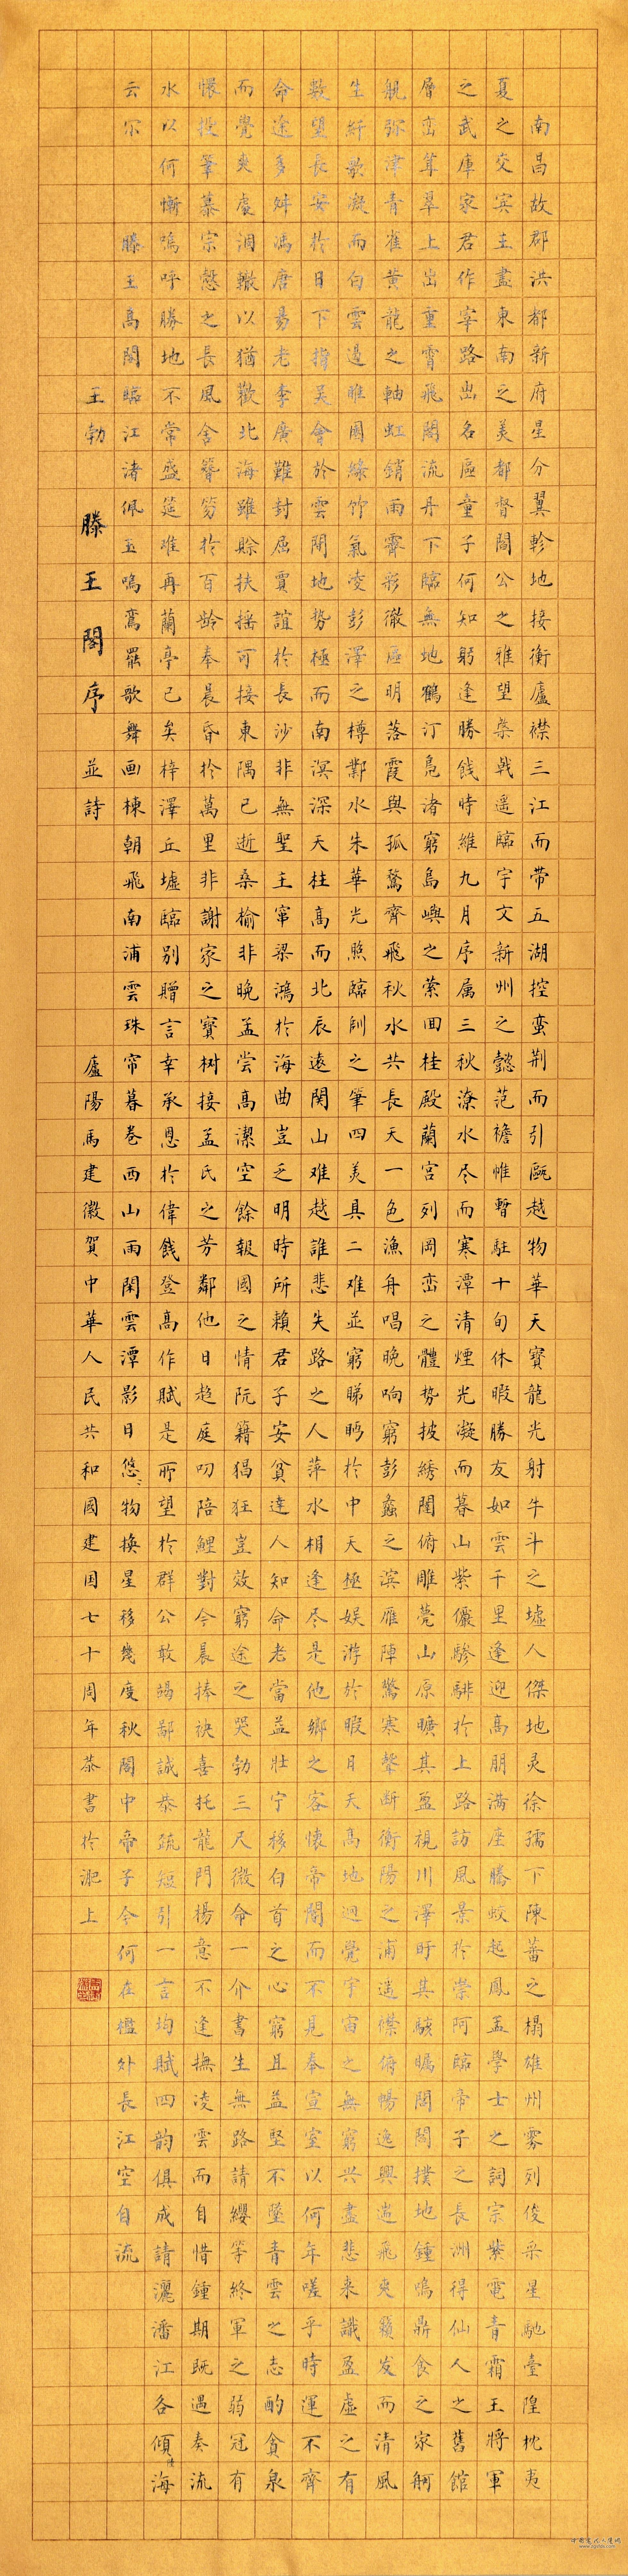 南昌故郡洪都新府星分翼軫地接衡廬襟三江而帶五湖控蛮荆而引甌越物華天寶龍光射牛斗之墟人傑地灵徐孺下陳蕃之榻雄州雾列俊采星馳臺隍枕夷
夏之交宾主盡東南之美都督閻公之雅望棨戟遥臨宇文新州之懿范襜帷暫駐十旬休暇勝友如雲千里逢迎高朋满座騰蛟起鳳孟學士之詞宗紫電青霜王將軍
之武庫家君作宰路出名區童子何知躬逢勝餞時維九月序属三秋潦水尽而寒潭清煙光凝而暮山紫儼骖騑於上路訪風景於崇阿臨帝子之長洲得仙人之舊館
層峦耸翠上出重霄飛閣流丹下臨無地鶴汀凫渚窮島嶼之萦回桂殿蘭宮列岡峦之體势披绣闥俯雕甍山原曠其盈視川澤盱其駭矚閭閻撲地鍾鳴鼎食之家舸
舰弥津青雀黄龍之軸虹銷雨霽彩徹區明落霞與孤鶩齊飛秋水共長天一色漁舟唱晚响窮彭蠡之滨雁陣驚寒聲断衡陽之浦遥襟俯暢逸興遄飛爽籟发而清風
生纤歌凝而白雲遏睢園綠竹氣凌彭澤之樽鄴水朱華光照臨訓之筆四美具二难並窮睇眄於中天極娱游於暇日天高地迥覺宇宙之無窮兴盡悲来識盈虚之有
數望長安於日下指吴會於雲間地势極而南溟深天柱高而北辰遠関山难越誰悲失路之人萍水相逢尽是他鄉之客懷帝閽而不見奉宣室以何年嗟乎時運不齊
命途多舛馮唐易老李廣難封屈賈誼於長沙非無聖主窜梁鴻於海曲豈乏明時所賴君子安貧達人知命老當益壮宁移白首之心窮且益堅不墜青雲之志酌貪泉
而覺爽處涸轍以猶歡北海雖賒扶摇可接東隅已逝桑榆非晚孟尝高潔空餘報國之情阮籍猖狂豈效窮途之哭勃三尺微命一介書生無路請纓等終軍之弱冠有
懷投筆慕宗慤之長風舍簪笏於百龄奉晨昏於萬里非謝家之寶树接孟氏之芳鄰他日趋庭叨陪鯉對今晨捧袂喜托龍門楊意不逢撫凌雲而自惜鍾期既遇奏流
水以何慚嗚呼勝地不常盛筵难再蘭亭已矣梓澤丘墟臨別贈言幸承恩於偉餞登高作賦是所望於群公敢竭鄙誠恭疏短引一言均賦四韵俱成請灑潘江各傾陸海
云尔 滕王高閣臨江渚佩玉鳴鸞罷歌舞画棟朝飛南浦雲珠帘暮卷西山雨閑雲潭影日悠〻物换星移幾度秋閣中帝子今何在檻外長江空自流
王勃 滕王閣序 並詩 廬陽馬建徽賀中華人民共和國建国七十周年恭書於淝上